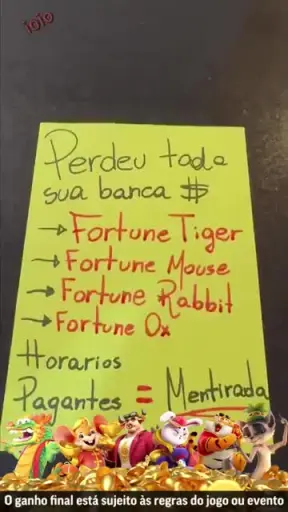 1010
Perdeu toda
sua banca $
→ Fortune Tiger
→ Fortune Mouse
→ Fortune Rabbit
→ Fortune Ox
Horarios
Pagantes = Mentirada
O ganho final está sujeito às regras do jogo ou evento